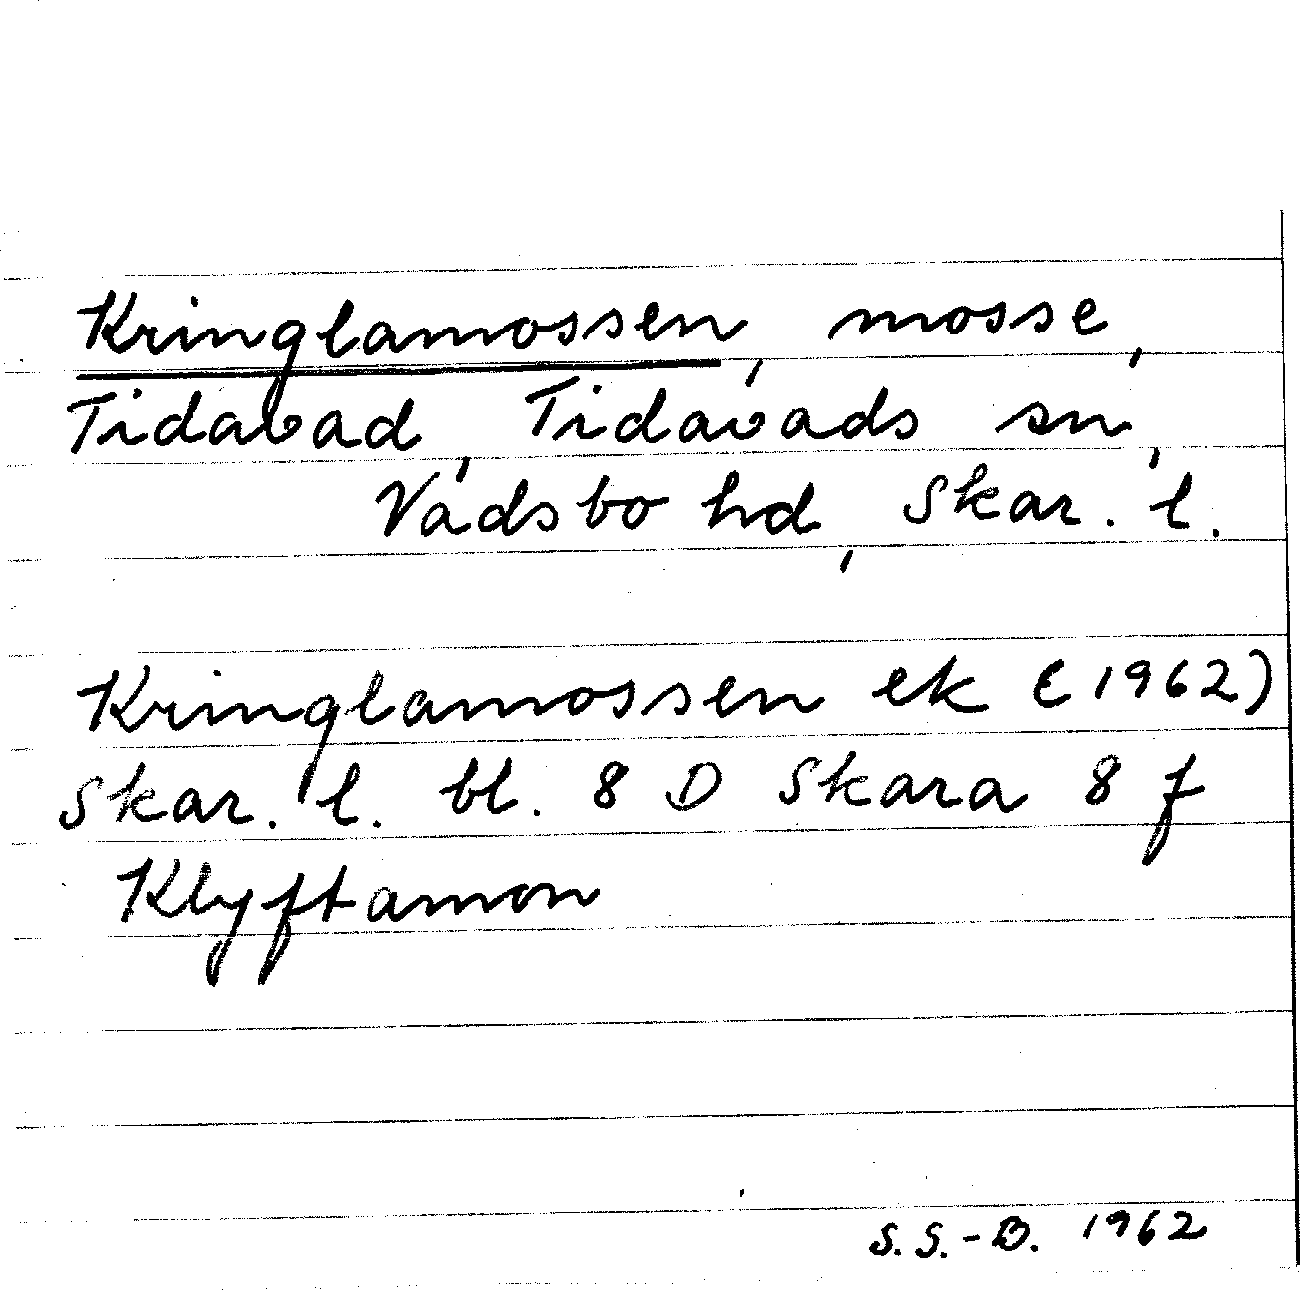 Kringlamossen, mosse,
Tidavad, Tidavads sn,
Vadsbo hd, Skar. l.
Kringlamossen ek (1962)
Skar. l. bl. 8 D Skara 8 f
Klyftamon
S.S.-B. 1962